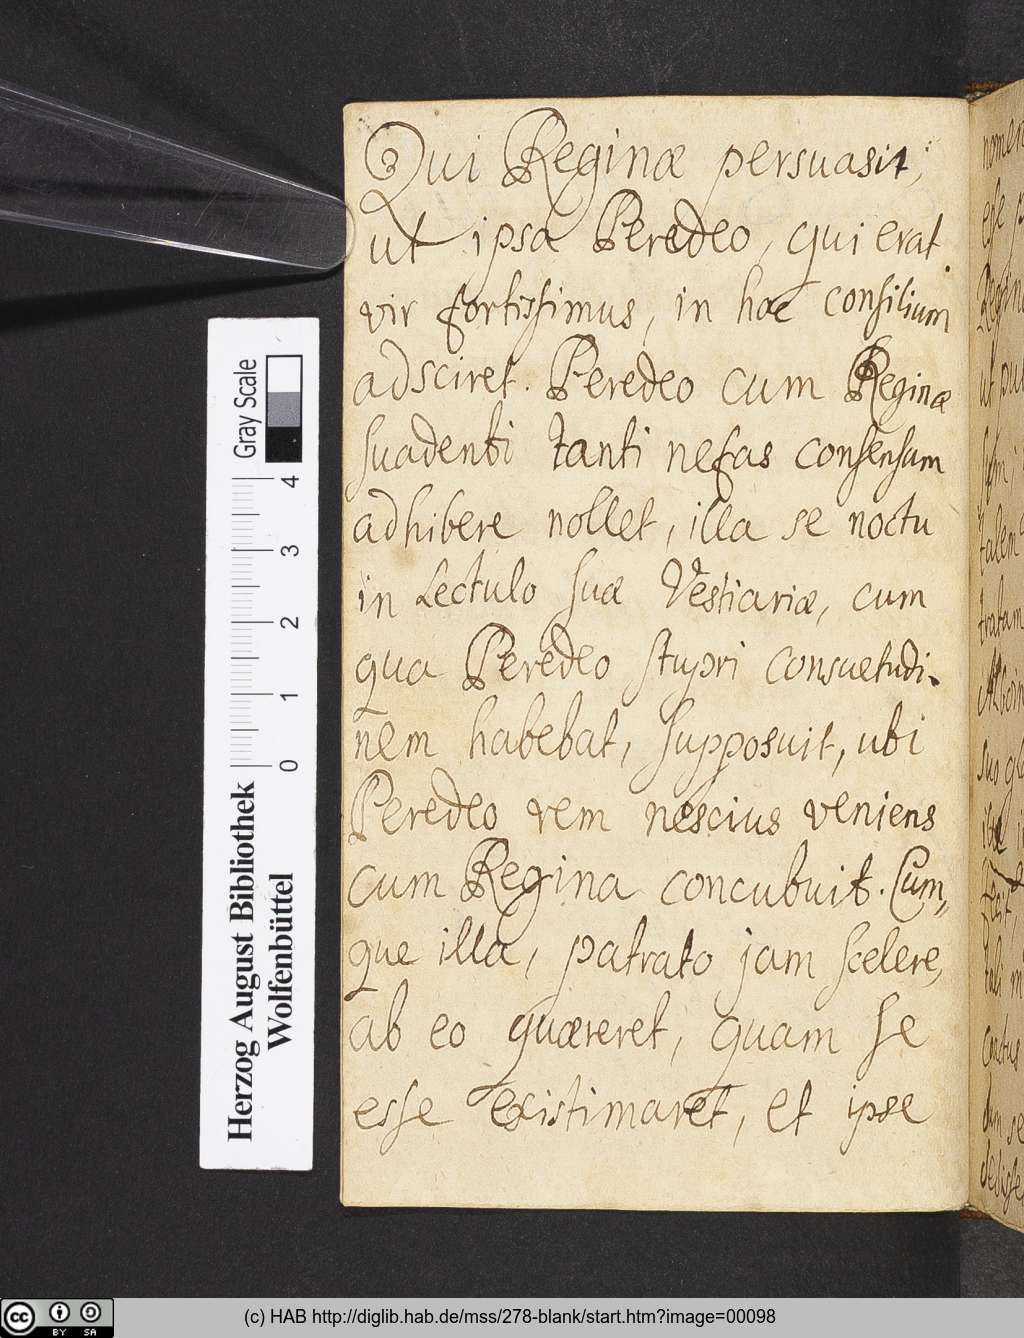 Qui Reginæ persuasit,
ut ipsa Peredeo, qui erat
vir fortissimus, in hoc consilium
adsciret. Peredeo cum Reginæ
suadenti tanti nefas consensum
adhibere nollet, illa se noctu
in Lectulo suæ Vestiariæ, cum
qua Peredeo stupri consuetudi-
nem habebat, supposuit, ubi
Peredeo rem nescius veniens
cum Regina concubuit. Cum,,
que illa, patrato jam scelere,
ab eo quæreret, quam se
esse existimaret, et ipse
Gray Scale
4
3
2
1
0
Herzog August Bibliothek
Wolfenbüttel
CC BY SA
(c) HAB http://diglib.hab.de/mss/278-blank/start.htm?image=00098